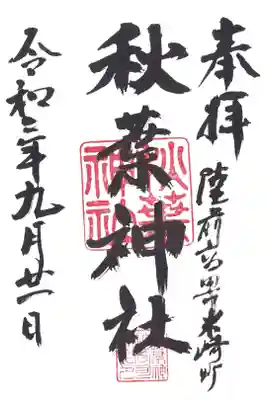 奉拝
陸前高田市米崎町
秋葉神社
令和二年九月廿一日
秋葉
神社